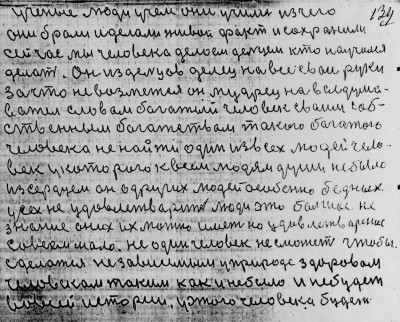 ученые люди чем они учили из чего
139
они брали и делали живой факт и сохранили
сейчас мы человека делаем делцем кто научился
делат. Он из делцов делец на все свои руки
за что не возмется он мудрец на все дума-
вател словам багатый человек своим соб-
ственным багатством такого багатого
человека не найти один из всех людей чело-
век у которого к всем людям души не было
и сердцем он о других людей особенно бедных
у сех не удовлетварит люди это балные не
знание о них их можно имет но удовлетварение
совсем мало. не один человек не сможет чтобы
сделатся независимым у природе здоровам
человекам таким как и не было и не будет
во всей истории. у этого человека будет